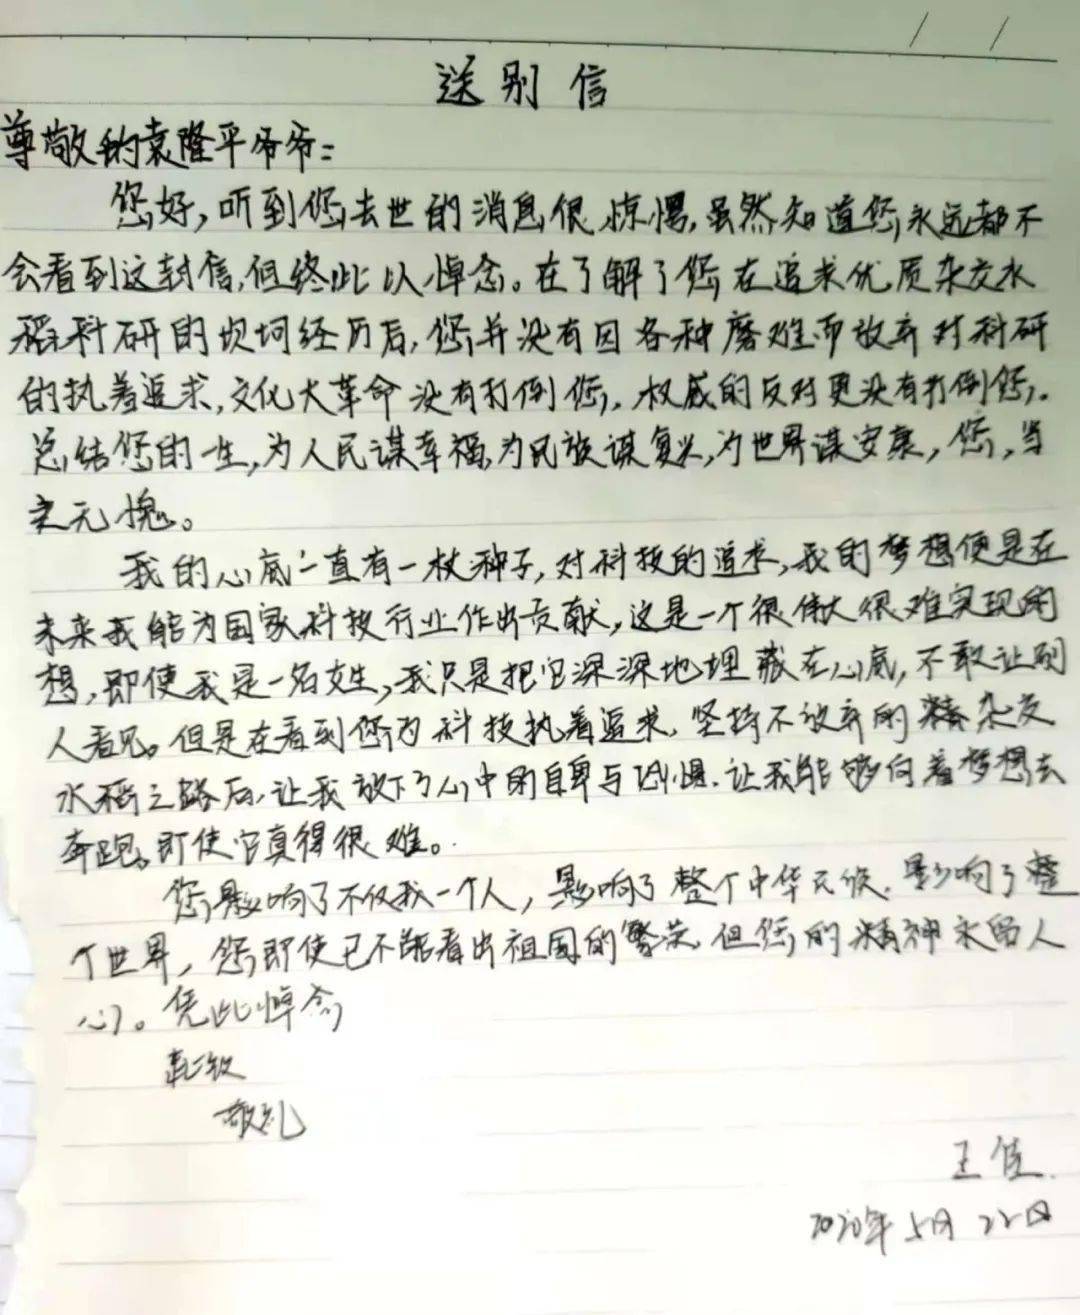 送别信
尊敬的袁隆平爷爷：
您好，听到您去世的消息很惊愕，虽然知道您永远都不
会看到这封信，但终此以悼念。在了解了您在追求优质杂交水
稻科研的坎坷经历后，您并没有因各种磨难而放弃对科研
的执着追求，文化大革命没有打倒您，权威的反对更没有打倒您。
总结您的一生，为人民谋幸福，为民族谋复兴，为世界谋安康，您，当
之无愧。
我的心底一直有一枚种子，对科技的追求，我的梦想便是在
未来我能为国家科技行业作出贡献，这是一个很伟大很难实现的
想，即使我是一名女生，我只是把它深深地埋藏在心底，不敢让别
人看见。但是在看到您为科技执着追求，坚持不放弃的杂交
水稻之路后，让我放下了心中的自卑与恐惧，让我能够向着梦想去
奔跑。即使它真得很难。
您影响了不仅我一个人，影响了整个中华民族，影响了整
个世界，您即使已不能看出祖国的繁荣，但您的精神永留人
心。凭此悼念
敬礼
王佳
2020年5月22日